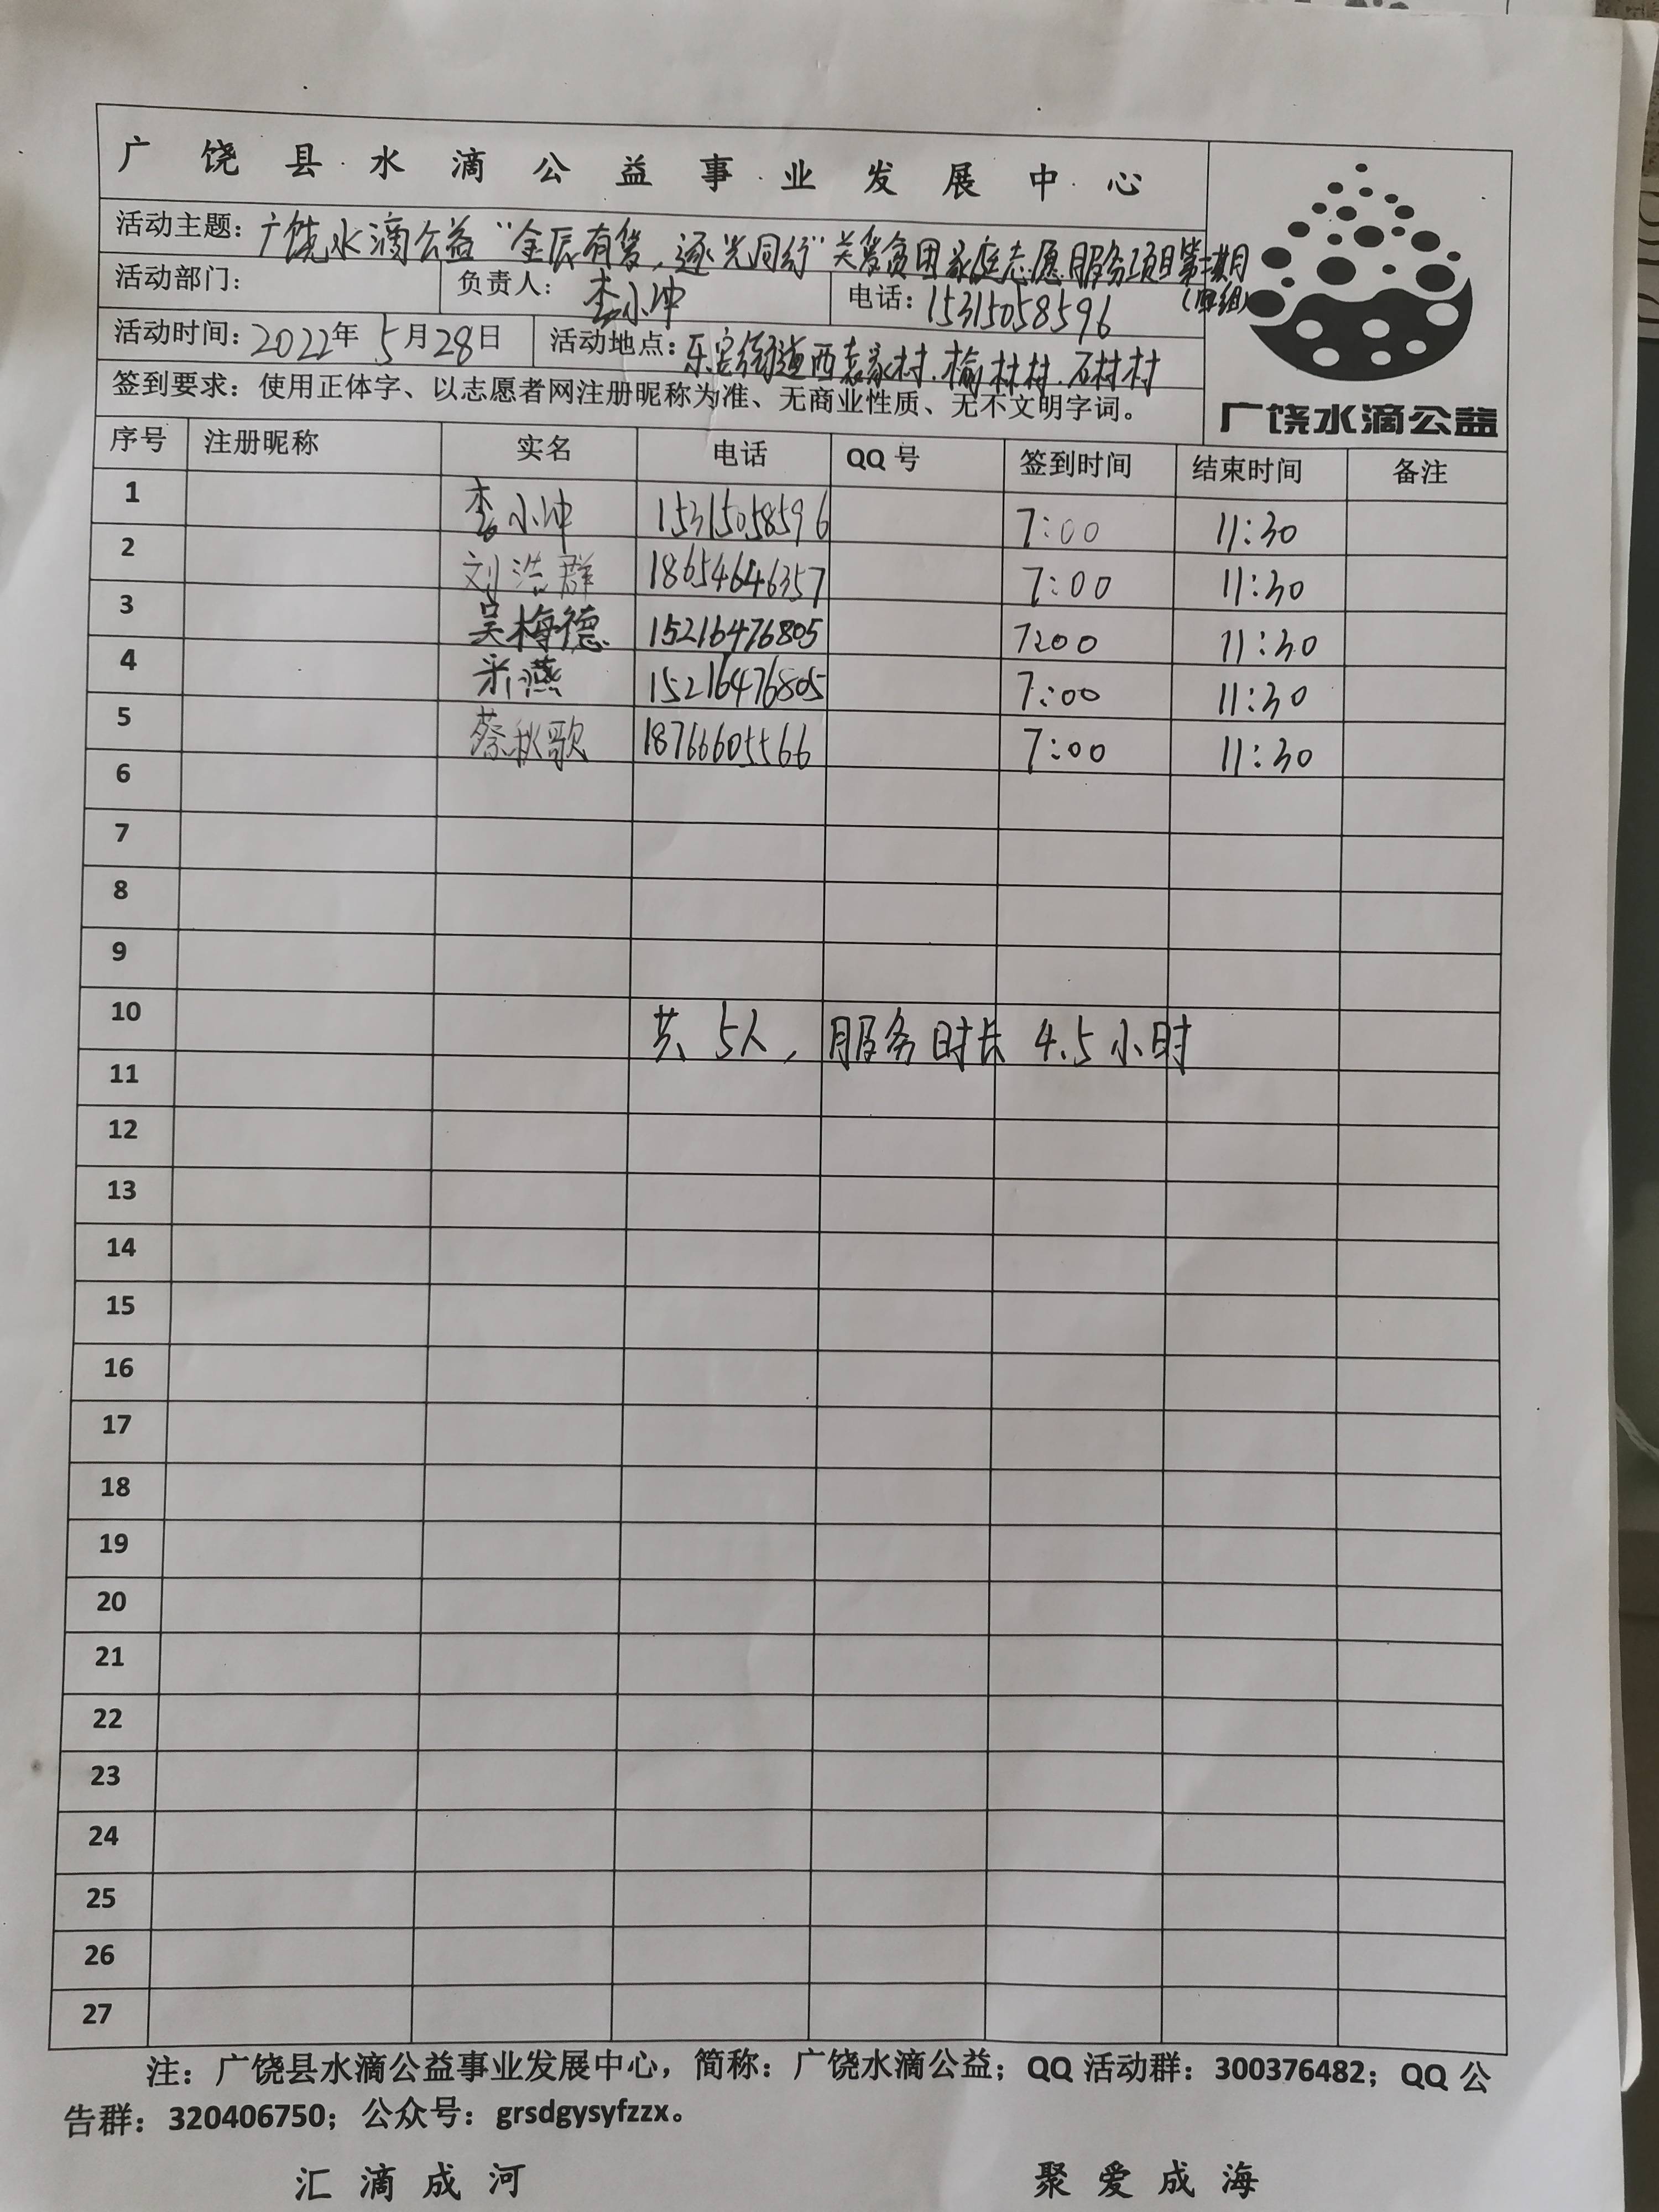 广饶县水滴公益事业发展中心
活动主题：广饶水滴公益“金辰有爱，逐光同行”关爱贫困家庭志愿服务项目第 期
（四组）
活动部门： 负责人：李小冲 电话：15315058596
活动时间：2022年5月28日 活动地点：乐安街道西袁家村.榆林村.石村村
签到要求：使用正体字、以志愿者网注册昵称为准、无商业性质、无不文明字词。
广饶水滴公益
序号 注册昵称 实名 电话 QQ号 签到时间 结束时间 备注
1 李小冲 15315058596 7:00 11:30
2 刘浩群 18654646357 7:00 11:30
3 吴梅德 15216476805 7:00 11:30
4 燕 15216476805 7:00 11:30
5 蔡秋歌 18766605566 7:00 11:30
6
7
8
9
10 共5人，服务时长4.5小时
11
12
13
14
15
16
17
18
19
20
21
22
23
24
25
26
27
注：广饶县水滴公益事业发展中心，简称：广饶水滴公益；QQ活动群：300376482；QQ公
告群：320406750；公众号：grsdgysyfzzx。
汇滴成河 聚爱成海